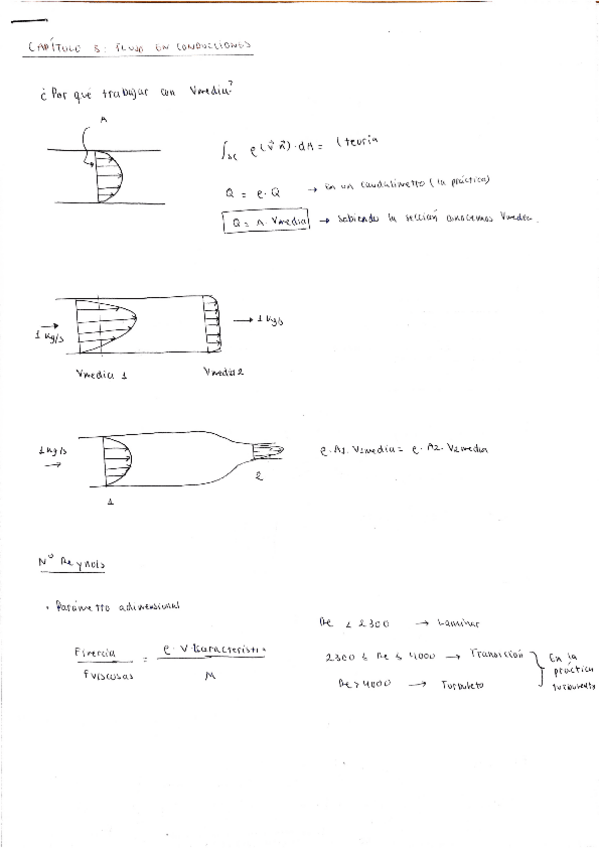 CAPÍTULO 5: FLUJO EN CONDUCCIONES
¿Por qué trabajar con Vmedia?
A
∫sc ρ(v⃗·n⃗)·dA = (teoría
Q = ρ·Q → En un caudalímetro (la práctica)
Q = A·Vmedia → sabiendo la sección conocemos Vmedia.
1 kg/s → 1 kg/s
Vmedia 1 Vmedia 2
1 kg/s
→
ρ·A1·V1media = ρ·A2·V2media
1 2
Nº Reynols
· Parámetro adimensional
Finercia / Fviscosas = ρ·V·Lcaracterist / μ
Re ≤ 2300 → Laminar
2300 ≤ Re ≤ 4000 → Transición
Re > 4000 → Turbuleto
En la práctica turbulento